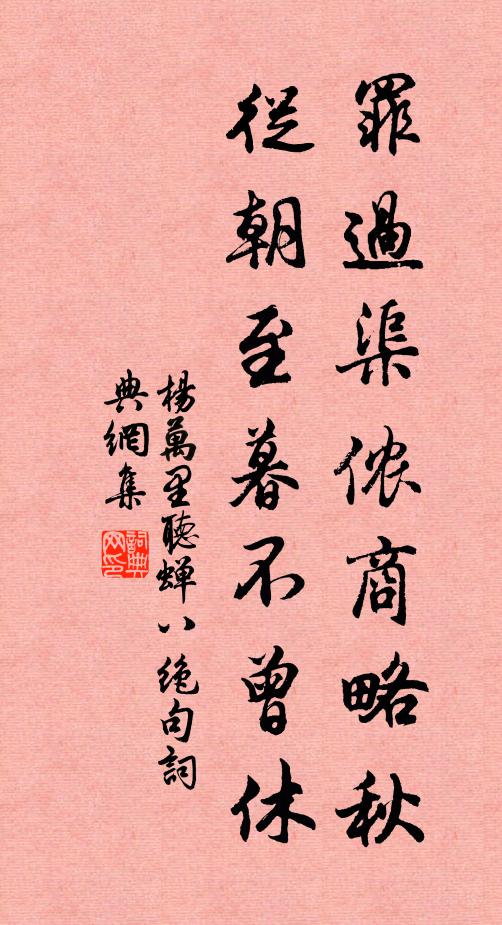 罪過渠侬商略秋
從朝至暮不曾休
楊萬里聽蝉八絶句詞
典網集
詞典
网印